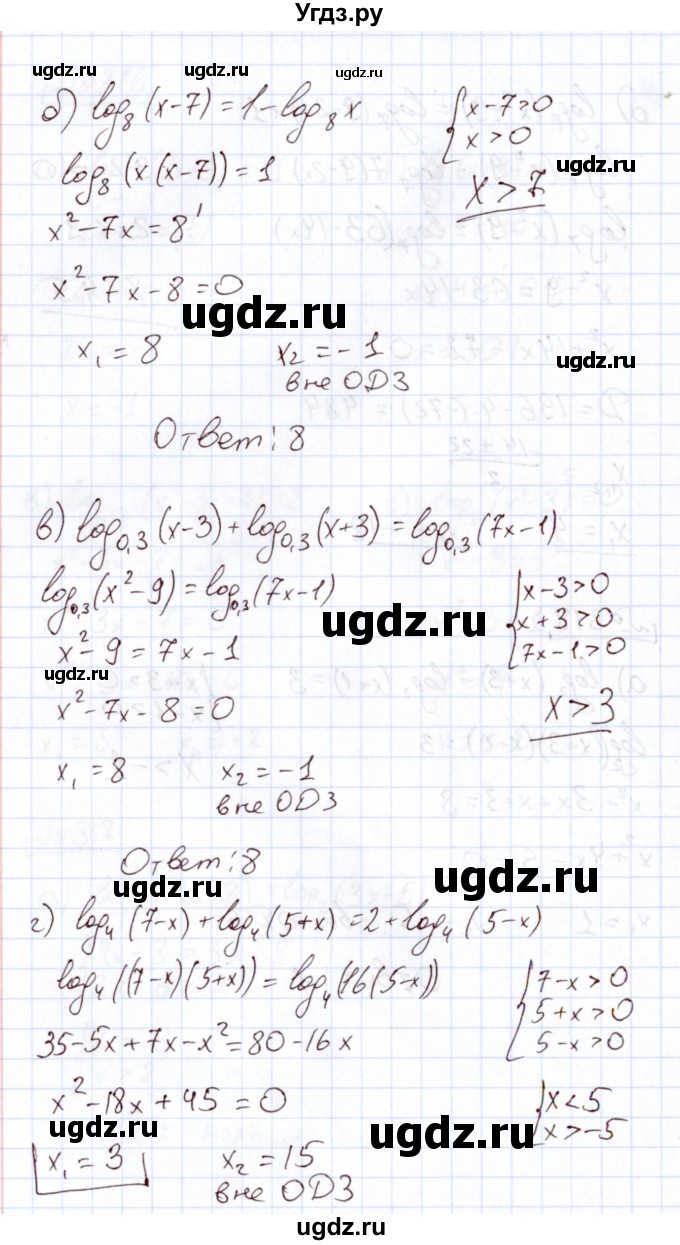 Угдз.ру
ugdz.ru
б) log₈(x-7) = 1 - log₈x
{x-7>0
x>0
ugdz.ru
log₈(x(x-7)) = 1
x>7
ugdz.ru
x²-7x = 8¹
x²-7x-8=0
ugdz.ru
x₁ = 8
x₂ = -1
вне ОДЗ
ugdz.ru
Ответ: 8
в) log₀,₃(x-3) + log₀,₃(x+3) = log₀,₃(7x-1)
log₀,₃(x²-9) = log₀,₃(7x-1)
{x-3>0
x+3>0
7x-1>0
ugdz.ru
x²-9 = 7x-1
ugdz.ru
x²-7x-8=0
x>3
x₁ = 8
x₂ = -1
вне ОДЗ
Ответ: 8
ugdz.ru
ugdz.ru
г) log₄(7-x) + log₄(5+x) = 2 + log₄(5-x)
log₄((7-x)(5+x)) = log₄(16(5-x))
{7-x>0
5+x>0
5-x>0
35-5x+7x-x² = 80-16x
x²-18x+45=0
{x<5
x>-5
ugdz.ru
ugdz.ru
x₁ = 3
x₂ = 15
вне ОДЗ
ugdz.ru
ugdz.ru